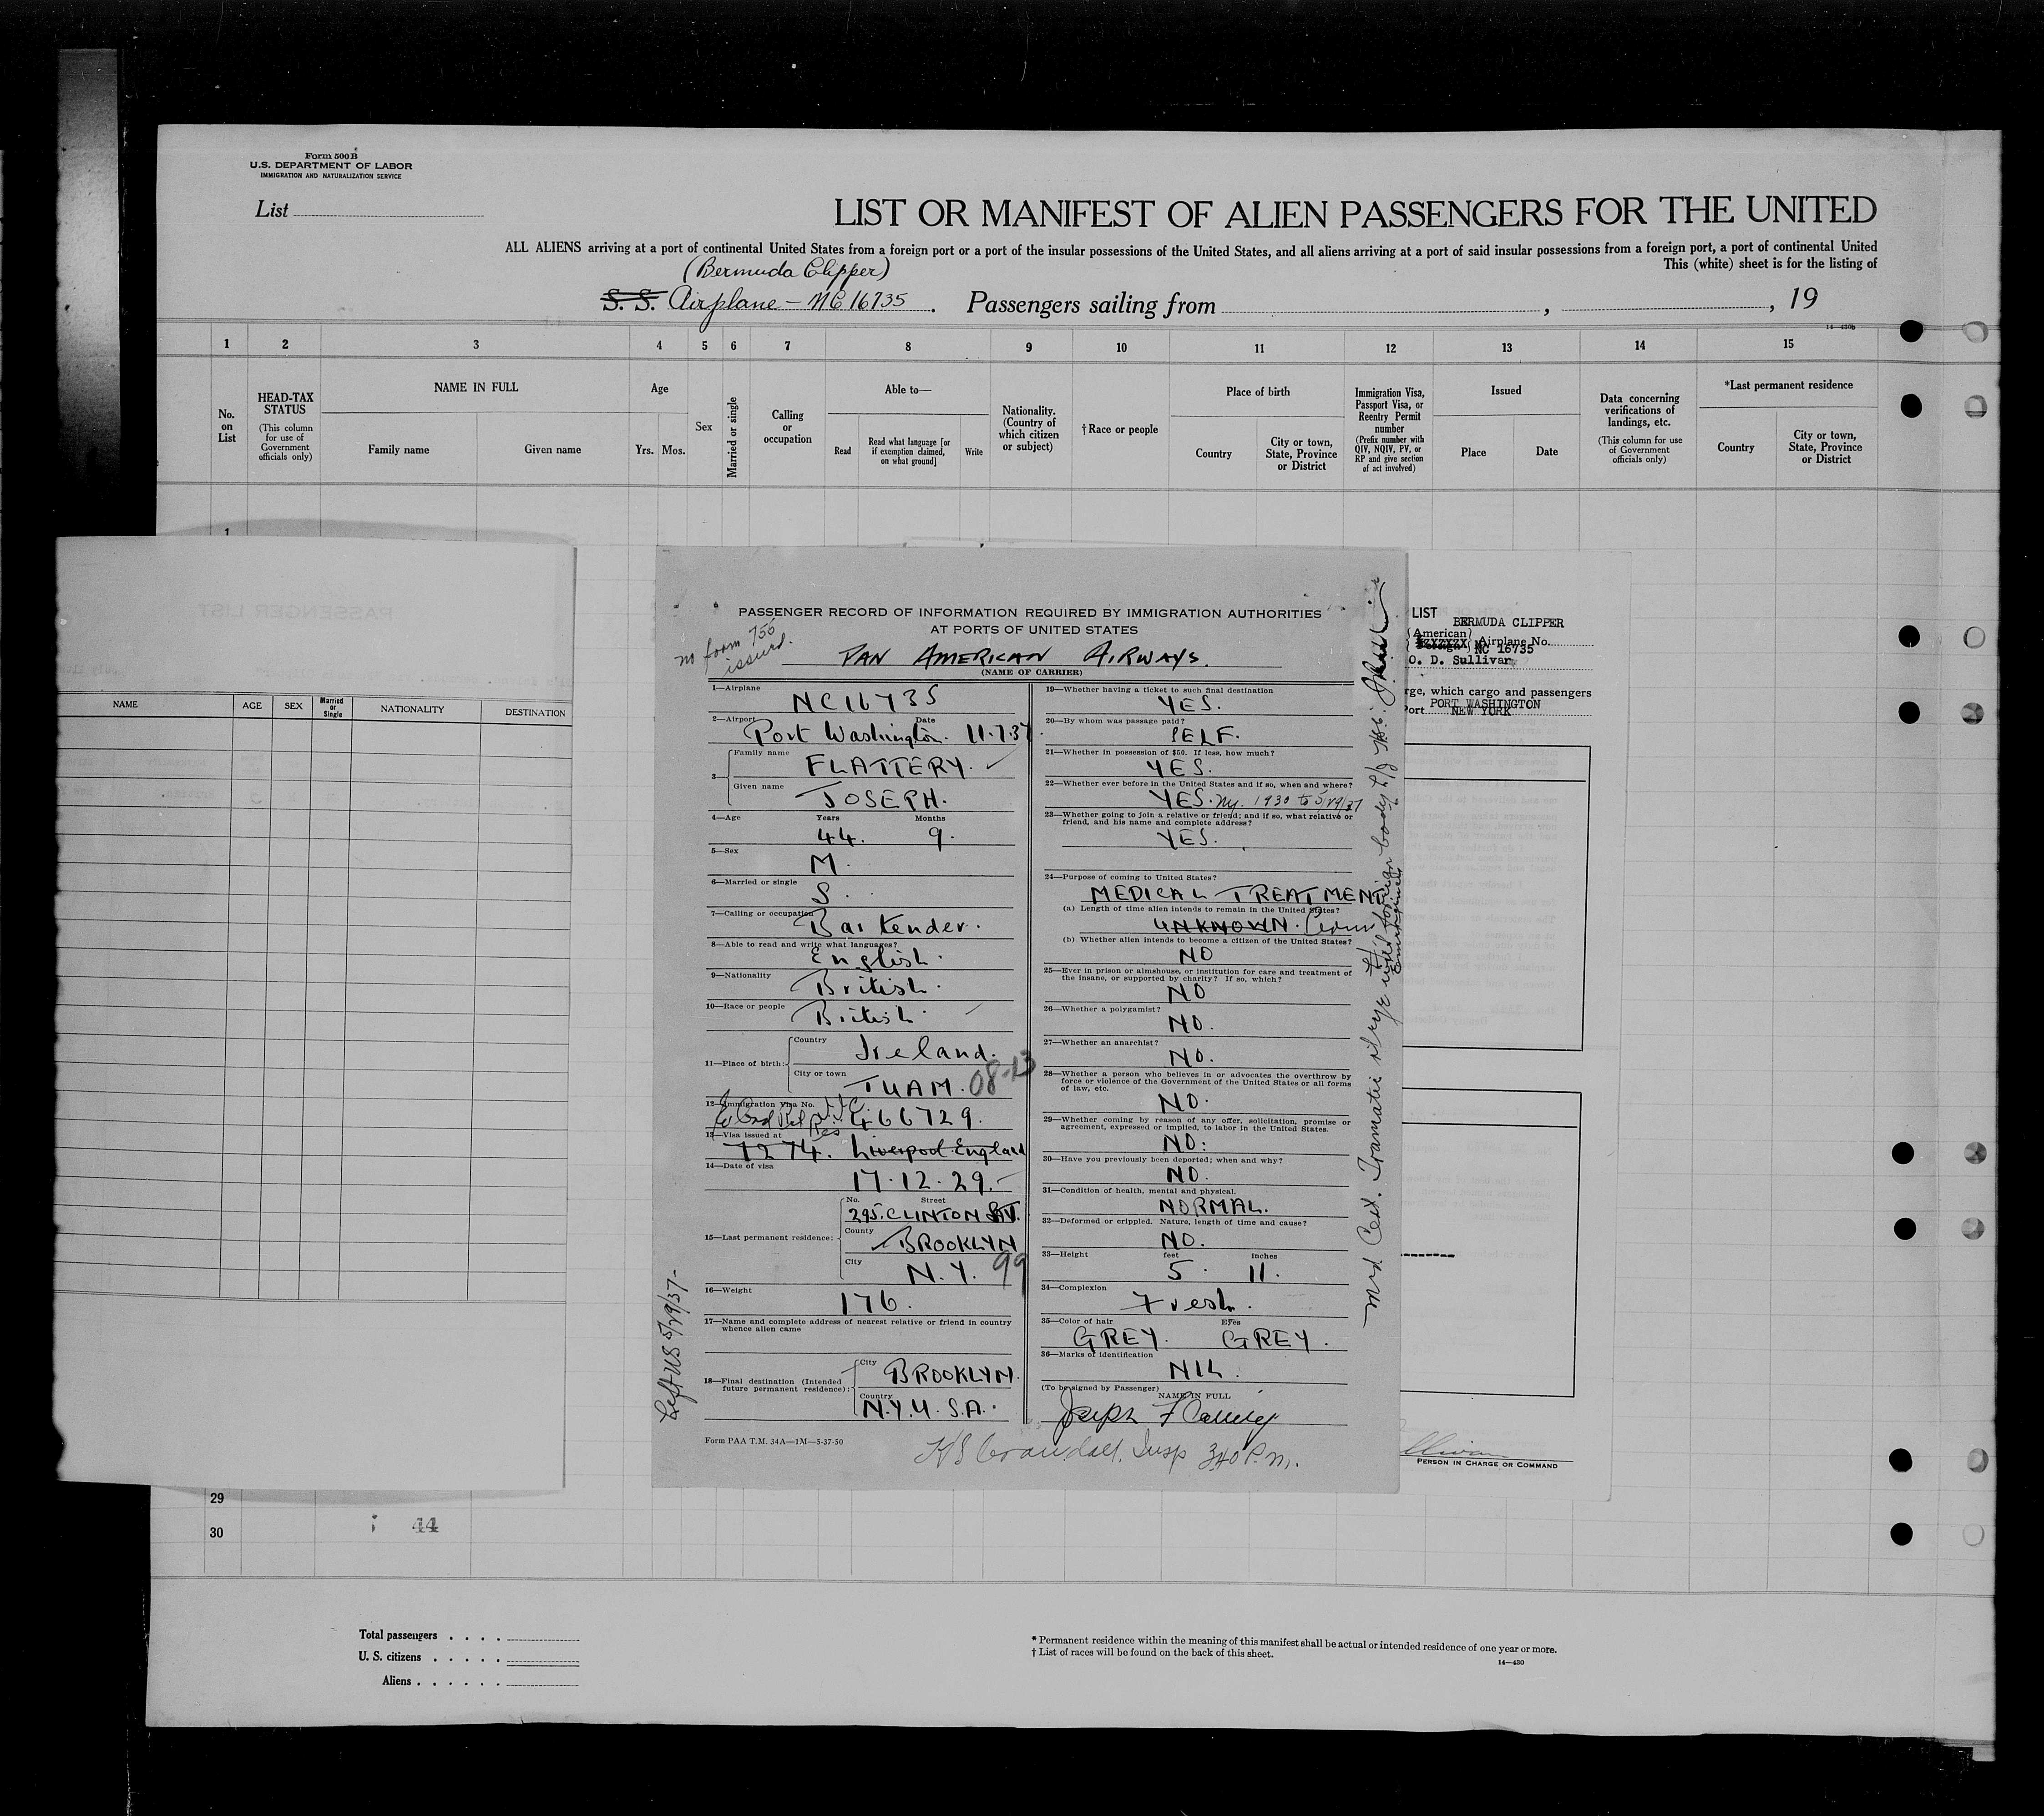 Form 500 B
U.S. DEPARTMENT OF LABOR
IMMIGRATION AND NATURALIZATION SERVICE
List
LIST OR MANIFEST OF ALIEN PASSENGERS FOR THE UNITED
ALL ALIENS arriving at a port of continental United States from a foreign port or a port of the insular possessions of the United States, and all aliens arriving at a port of said insular possessions from a foreign port, a port of continental United
This (white) sheet is for the listing of
(Bermuda Clipper)
S. S. Airplane - NC 16735. Passengers sailing from , , 19
14—430b
1 2 3 4 5 6 7 8 9 10 11 12 13 14 15
No. on List
HEAD-TAX STATUS
(This column for use of Government officials only)
NAME IN FULL
Family name
Given name
Age
Yrs. Mos.
Sex
Married or single
Calling or occupation
Able to—
Read
Read what language [or if exemption claimed, on what ground]
Write
Nationality. (Country of which citizen or subject)
† Race or people
Place of birth
Country
City or town, State, Province or District
Immigration Visa, Passport Visa, or Reentry Permit number
(Prefix number with QIV, NQIV, PV, or RP and give section of act involved)
Issued
Place
Date
Data concerning verifications of landings, etc.
(This column for use of Government officials only)
*Last permanent residence
Country
City or town, State, Province or District
1
PASSENGER LIST
NAME AGE SEX Married or Single NATIONALITY DESTINATION
PASSENGER RECORD OF INFORMATION REQUIRED BY IMMIGRATION AUTHORITIES
AT PORTS OF UNITED STATES
no form 756
issued.
PAN AMERICAN AIRWAYS.
(NAME OF CARRIER)
1—Airplane NC16735
2—Airport Date
Port Washington. 11.7.37.
3— Family name
FLATTERY. ✓
Given name
JOSEPH.
4—Age Years Months
44. 9.
5—Sex
M.
6—Married or single
S.
7—Calling or occupation
Bartender.
8—Able to read and write what languages?
English.
9—Nationality
British.
10—Race or people
British.
11—Place of birth: Country
Ireland.
City or town
TUAM. 08-13
12—Immigration Visa No.
466729.
13—Visa issued at
7274. Liverpool England
14—Date of visa
17.12.29.
15—Last permanent residence: No. Street
295. CLINTON AV.
County
BROOKLYN
City
N.Y. 99
16—Weight
176.
17—Name and complete address of nearest relative or friend in country whence alien came
18—Final destination (Intended future permanent residence): City
BROOKLYN.
Country
N.Y. U.S.A.
Form PAA T.M. 34A—1M—5-37-50
Left US 5/29/37-
19—Whether having a ticket to such final destination
YES.
20—By whom was passage paid?
SELF.
21—Whether in possession of $50. If less, how much?
YES.
22—Whether ever before in the United States and if so, when and where?
YES. Ny. 1930 to 5/29/37
23—Whether going to join a relative or friend; and if so, what relative or friend, and his name and complete address?
YES.
24—Purpose of coming to United States?
MEDICAL TREATMENT
(a) Length of time alien intends to remain in the United States?
UNKNOWN.
(b) Whether alien intends to become a citizen of the United States?
NO
25—Ever in prison or almshouse, or institution for care and treatment of the insane, or supported by charity? If so, which?
NO
26—Whether a polygamist?
NO.
27—Whether an anarchist?
NO.
28—Whether a person who believes in or advocates the overthrow by force or violence of the Government of the United States or all forms of law, etc.
NO.
29—Whether coming by reason of any offer, solicitation, promise or agreement, expressed or implied, to labor in the United States.
NO.
30—Have you previously been deported; when and why?
NO.
31—Condition of health, mental and physical.
NORMAL.
32—Deformed or crippled. Nature, length of time and cause?
NO.
33—Height feet inches
5. 11.
34—Complexion
Fresh.
35—Color of hair Eyes
GREY. GREY.
36—Marks of identification
NIL.
(To be signed by Passenger)
NAME IN FULL
Joseph Flattery
Insp 340 P.m.
Med Cert.
foreign body
LIST
BERMUDA CLIPPER
American Airplane No.
NC 16735
O. D. Sullivan
rge, which cargo and passengers
PORT WASHINGTON
Port NEW YORK
PERSON IN CHARGE OR COMMAND
29
30
44
Total passengers . . . .
U. S. citizens . . . . .
Aliens . . . . . .
* Permanent residence within the meaning of this manifest shall be actual or intended residence of one year or more.
† List of races will be found on the back of this sheet.
14—430